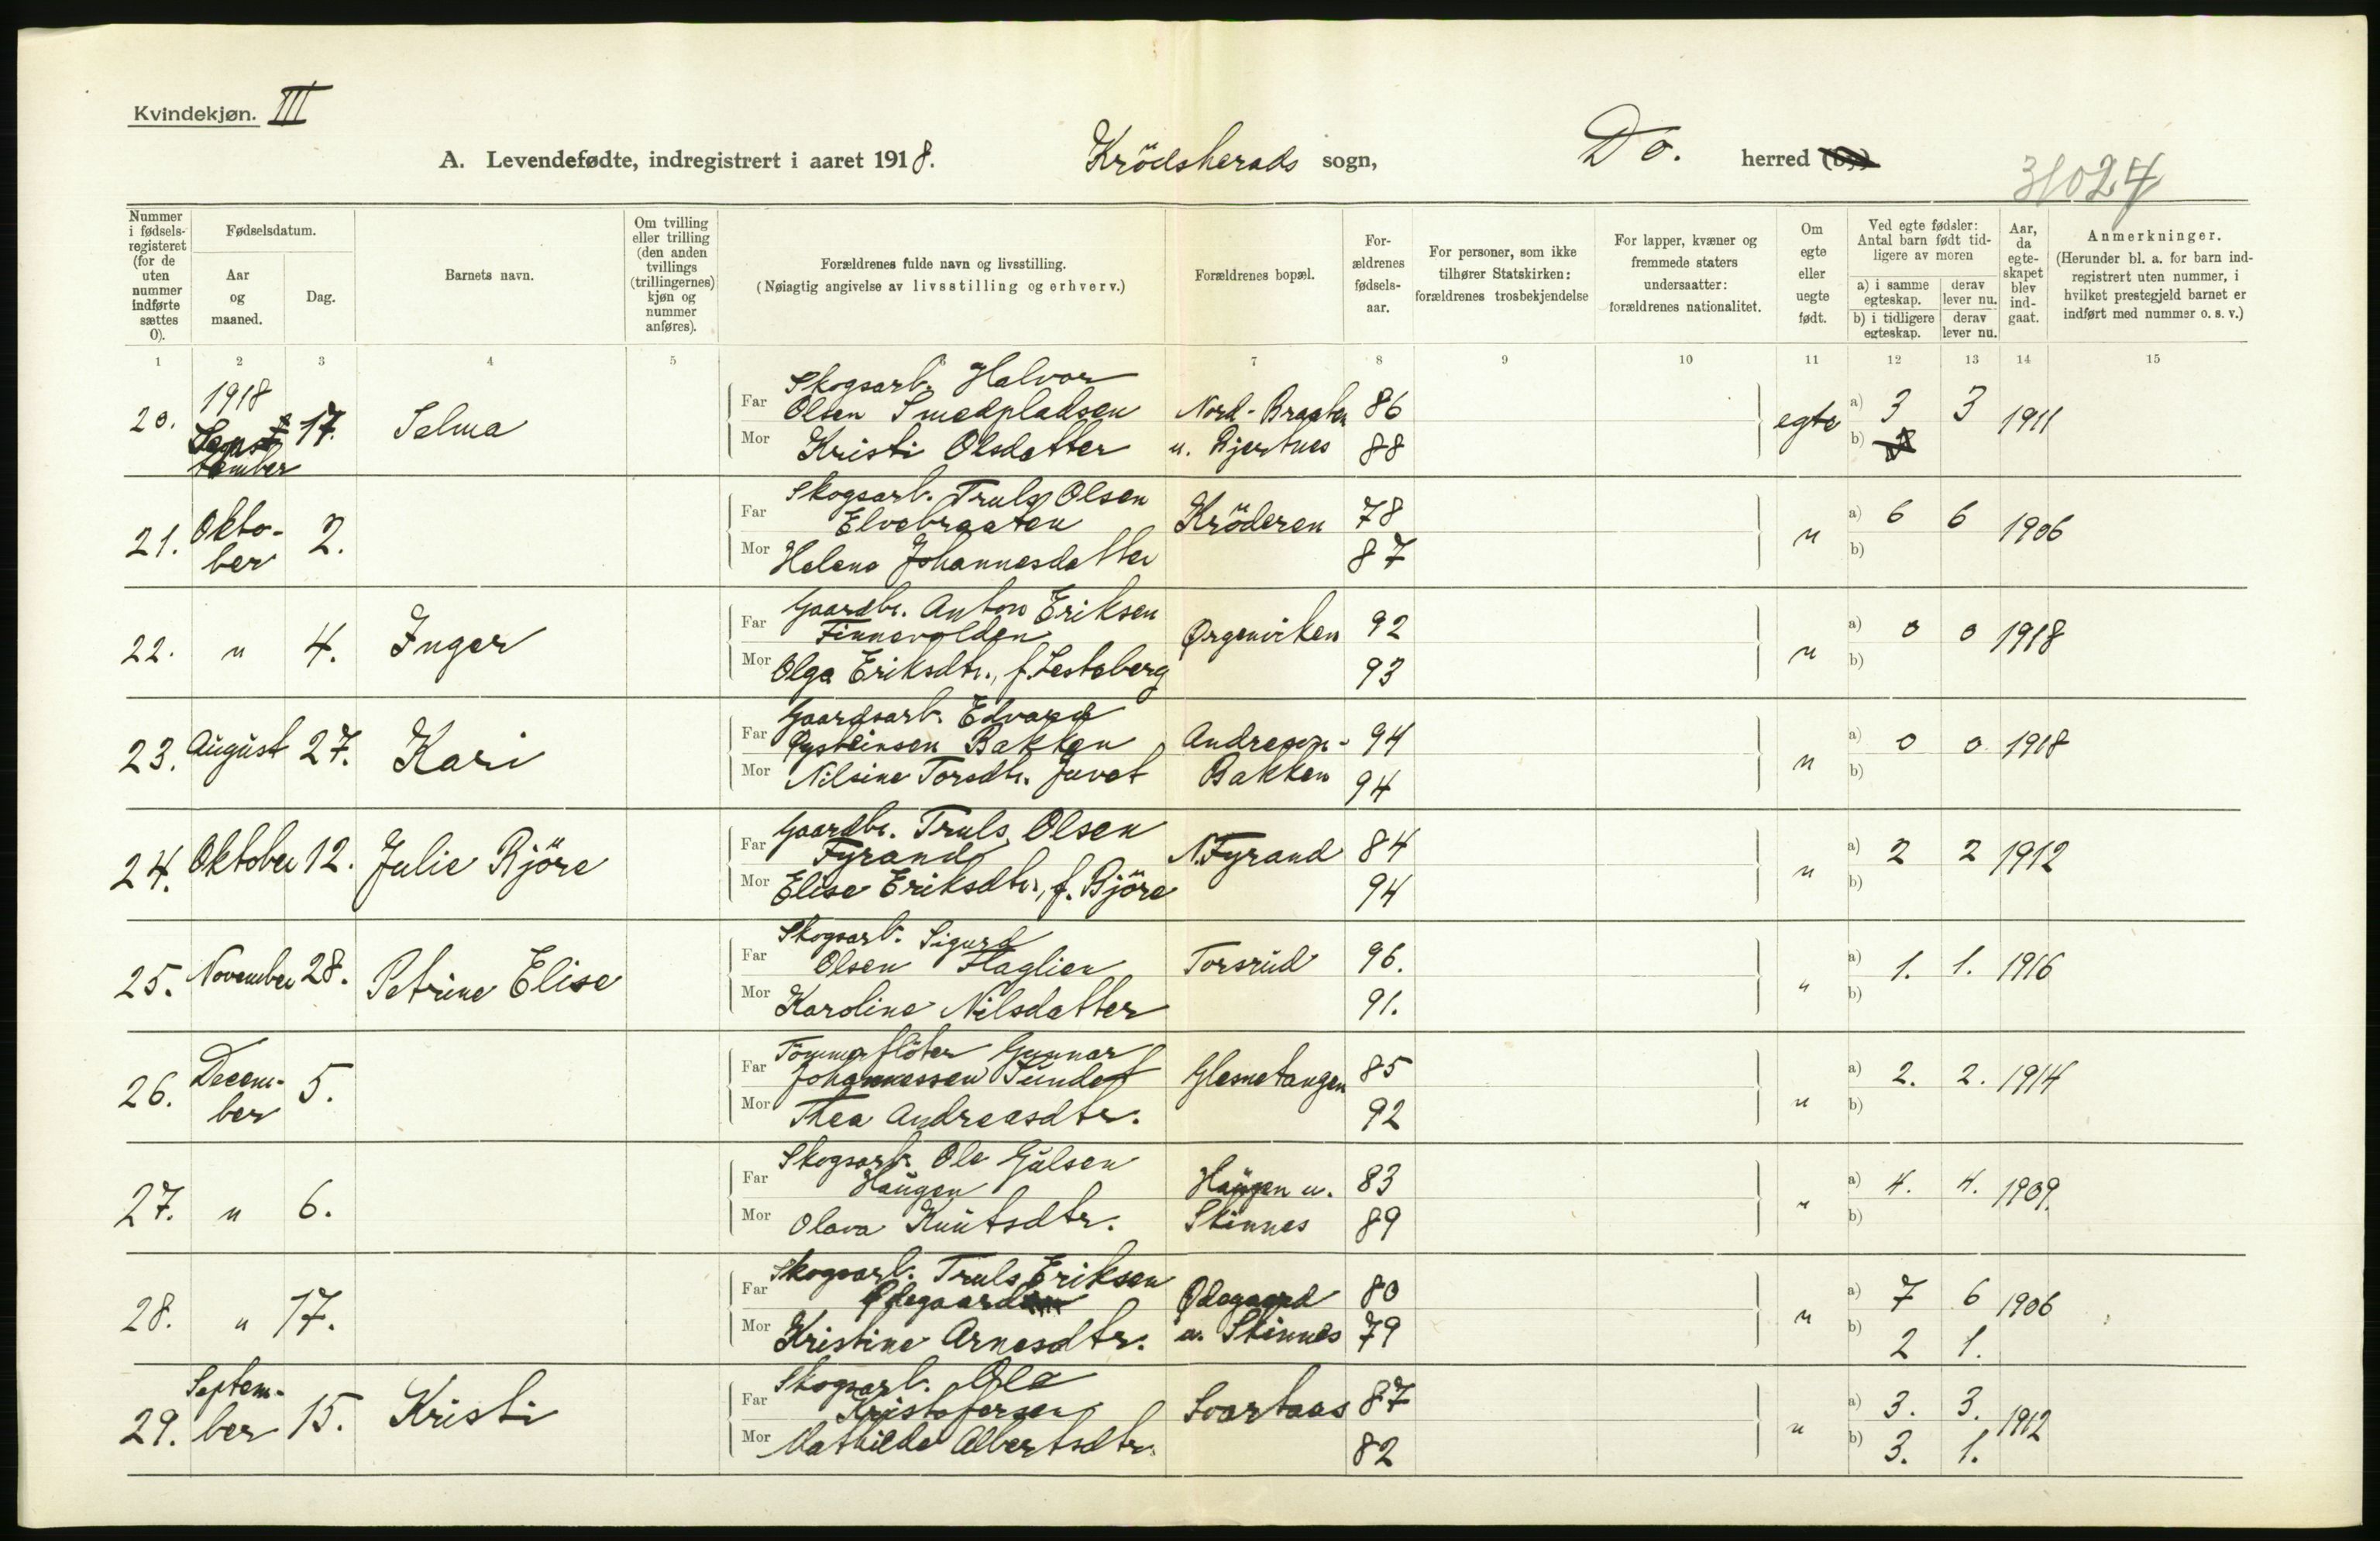 Kvindekjøn. III
A. Levendefødte, indregistrert i aaret 1918. Krödsherads sogn, Do. herred (by)
31024
Nummer i fødselsregisteret (for de uten nummer indførte sættes 0).
Fødselsdatum.
Aar og maaned.
Dag.
Barnets navn.
Om tvilling eller trilling (den anden tvillings (trillingernes) kjøn og nummer anføres).
Forældrenes fulde navn og livsstilling.
(Nøiagtig angivelse av livsstilling og erhverv.)
Forældrenes bopæl.
For-ældrenes fødsels-aar.
For personer, som ikke tilhører Statskirken: forældrenes trosbekjendelse
For lapper, kvæner og fremmede staters undersaatter: forældrenes nationalitet.
Om egte eller uegte født.
Ved egte fødsler: Antal barn født tid-ligere av moren
a) i samme egteskap.
derav lever nu.
b) i tidligere egteskap.
derav lever nu.
Aar, da egte-skapet blev ind-gaat.
Anmerkninger.
(Herunder bl. a. for barn ind-registrert uten nummer, i hvilket prestegjeld barnet er indført med nummer o. s. v.)
1 2 3 4 5 6 7 8 9 10 11 12 13 14 15
1918
Far Skogsarb. Halvor
20. September 17. Selma Olsen Smedpladsen Nord-Braaten 86 egte a) 3 3 1911
Mor Kristi Olsdatter u. Bjertnes 88 b)
Far Skogsarb. Truls Olsen
21. Oktober 2. Elvebraaten Kröderen 78 " a) 6 6 1906
Mor Helene Johannesdatter 87 b)
Far Gaardbr. Anton Eriksen
22. " 4. Inger Finnevolden Ørgenviken 92 " a) 0 0 1918
Mor Olga Eriksdtr., f. Lesteberg 93 b)
Far Gaardsarb. Edvard
23. August 27. Kari Øysteinsen Bakken Andresen- 94 " a) 0 0 1918
Mor Nilsine Torsdtr. Juvet Bakken 94 b)
Far Gaardbr. Truls Olsen
24. Oktober 12. Julie Björe Fyrand N. Fyrand 84 " a) 2 2 1912
Mor Elise Eriksdtr., f. Björe 94 b)
Far Skogsarb. Sigurd
25. November 28. Petrine Elise Olsen Haglien Torsrud 96. " a) 1. 1. 1916
Mor Karoline Nilsdatter 91. b)
Far Tömmerflöter Gunnar
26. December 5. Johannessen Sundet Glesnetangen 85 " a) 2. 2. 1914
Mor Thea Andreasdtr. 92 b)
Far Skogsarb. Ole Gulsen
27. " 6. Haugen Haugen u. 83 " a) 4. 4. 1909.
Mor Olava Knutsdtr. Skinnes 89 b)
Far Skogsarb. Truls Eriksen
28. " 17. Ødegaard Ødegaard 80 " a) 7 6 1906
Mor Kristine Arnesdtr. u. Skinnes 79 b) 2 1.
Far Skogsarb. Ole
29. September 15. Kristi Kristofersen Svartaas 87 " a) 3. 3. 1912
Mor Mathilde Albertsdtr. 82 b) 3. 1.